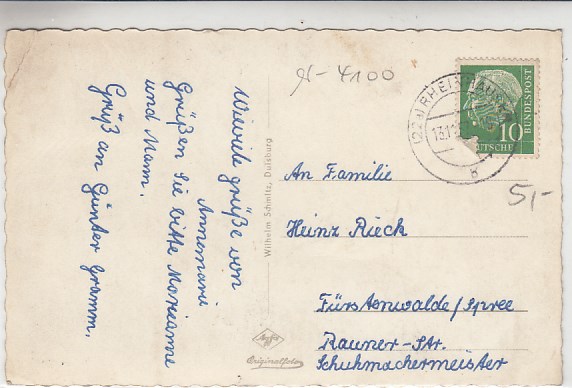 Wieviele grüße von
Annemarie
Grüßen Sie bitte Marianne
und Mann.
Grüß an Günter Gramm.
Wilhelm Schmitz, Duisburg
4100
(22a) RHEINHAUSEN
13.11
b
10
DEUTSCHE
BUNDESPOST
5,-
An Familie
Heinz Rieck
Fürstenwalde/Spree
Rauner-Str.
Schuhmachermeister
Agfa
Originalfoto